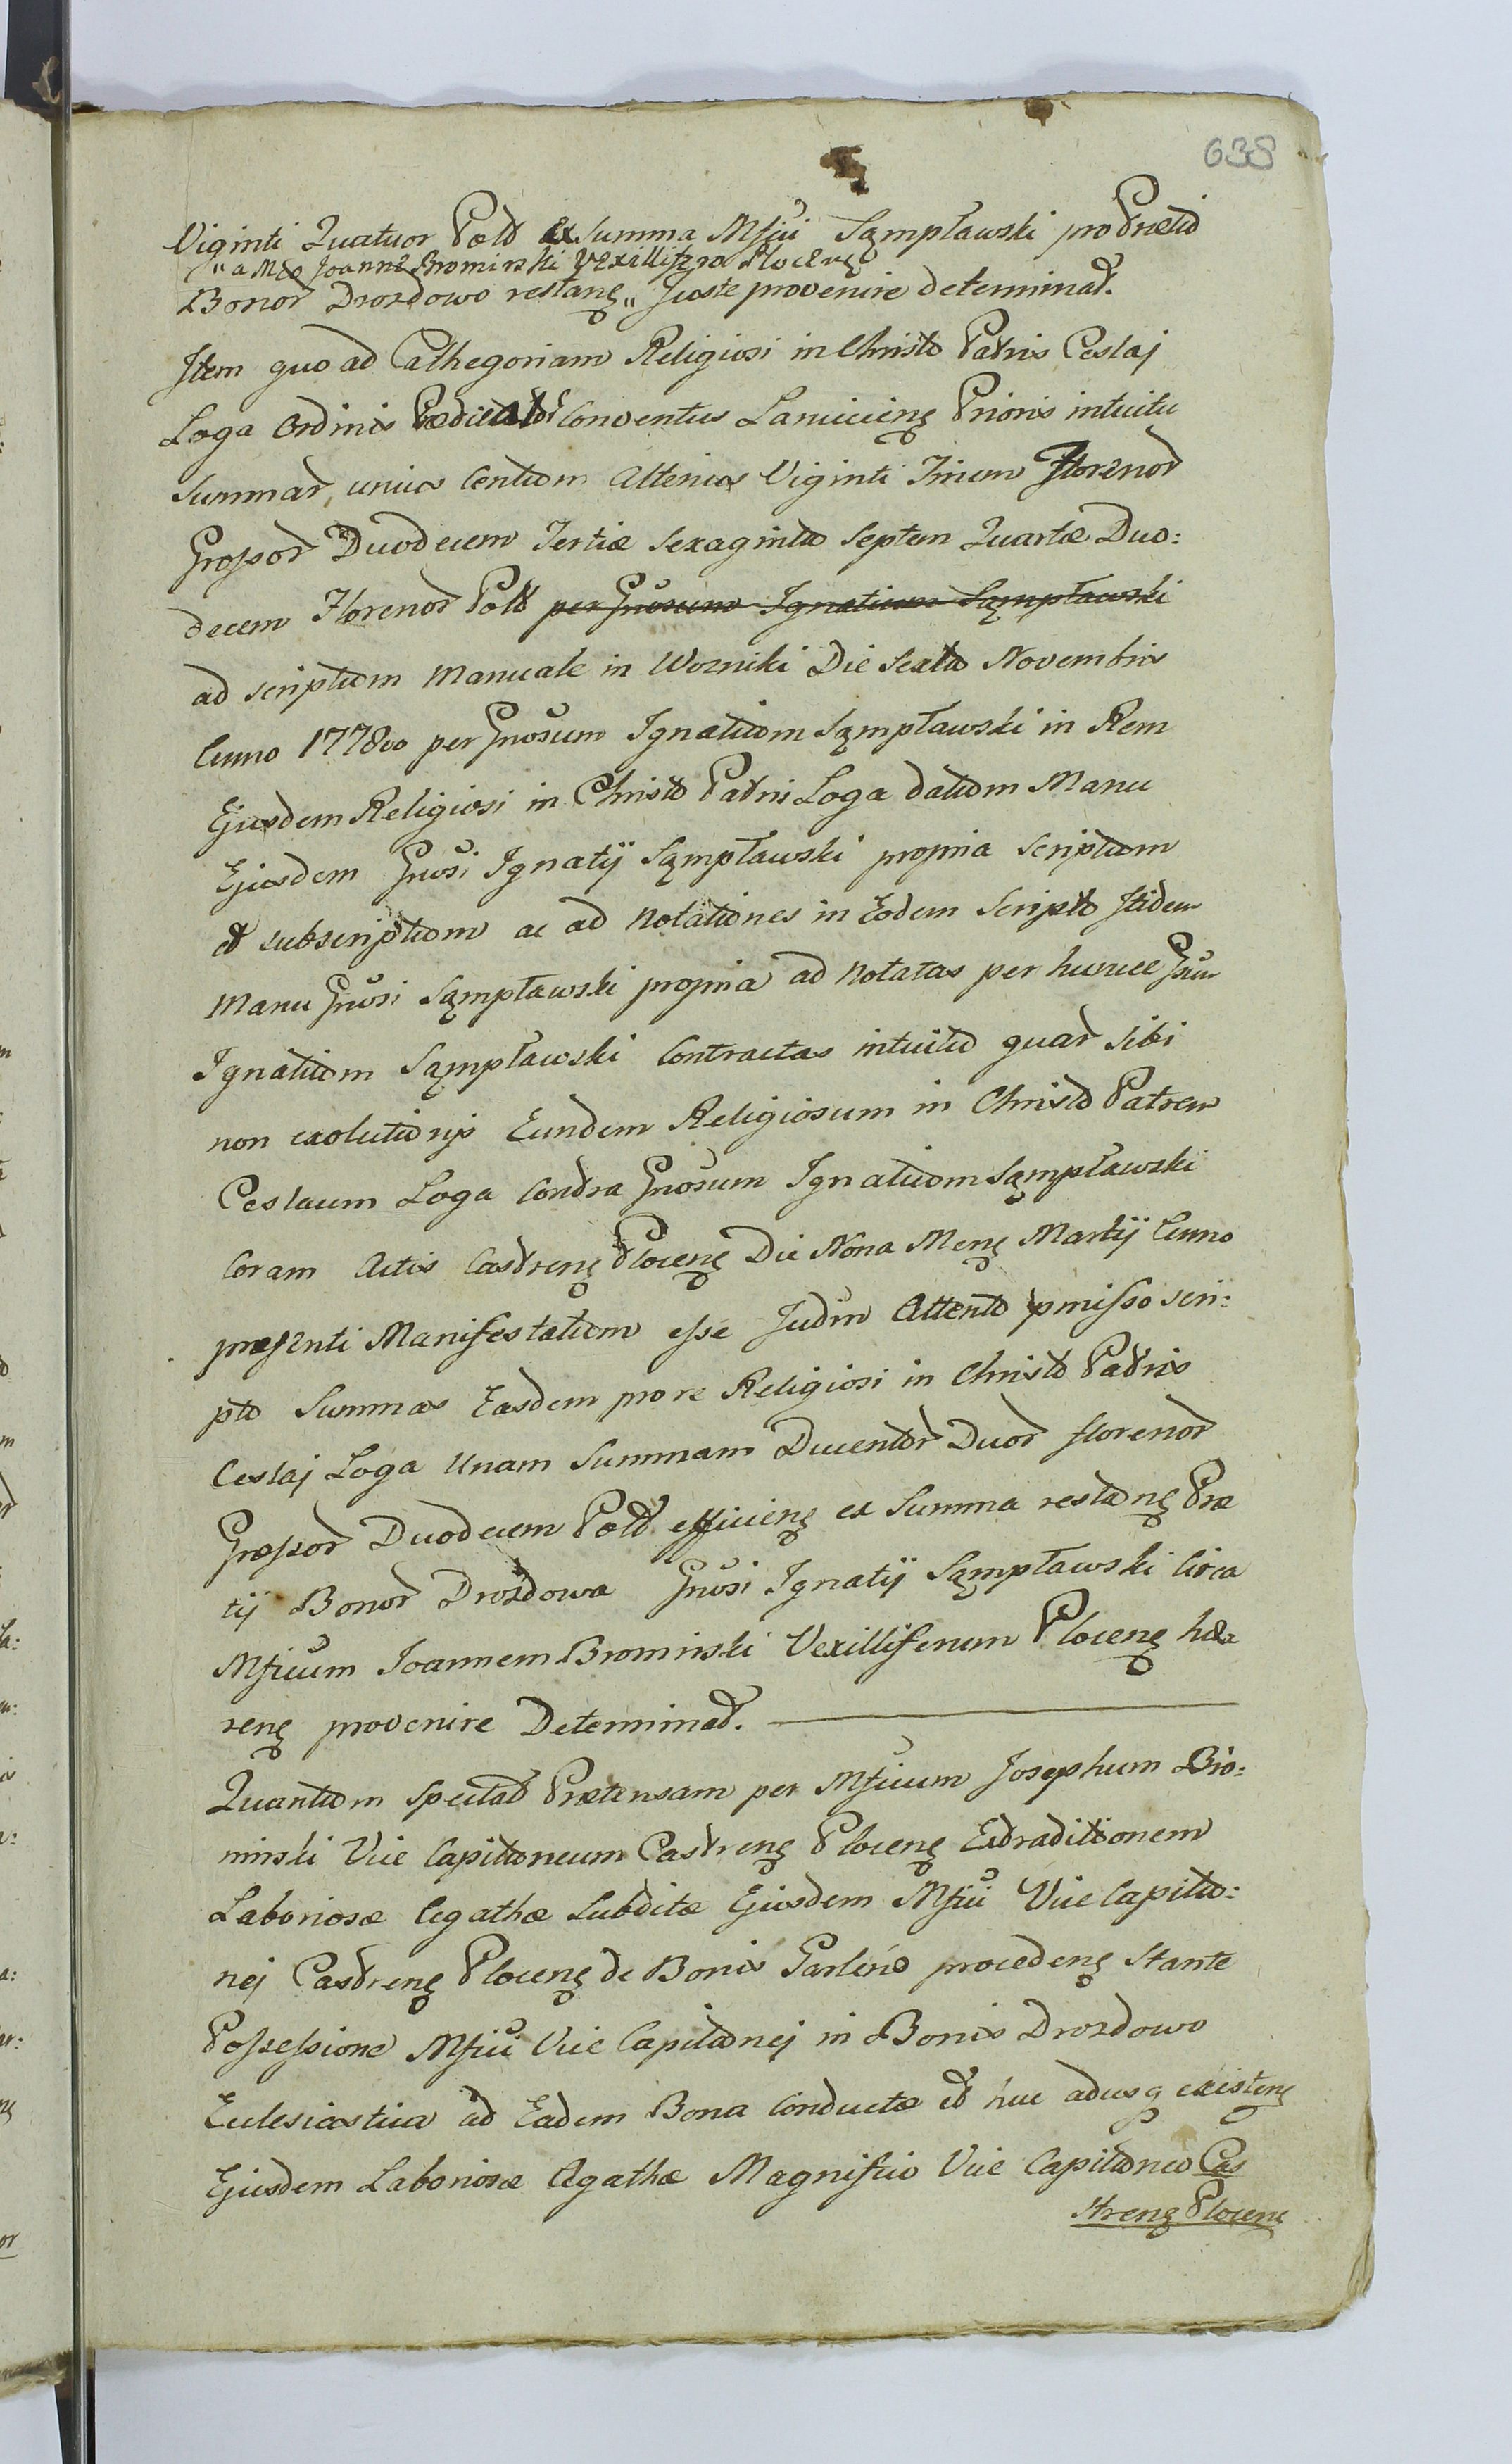 638
Viginti Quatuor Pold ex Summa Mfici Sąmpławski pro Prætio
"a Mfco Joanne Brominski Vexillifero Plocen
Bonor Drozdowo restan " Juste provenire determinat.
Item quo ad Cathegoriam Religiosi in Christo Patris Ceslaj
Loga Ordinis Prædicator Conventus Lanicien Prioris intuitu
Summar, unius Centum Alterius Viginti Trium Florenor
Grossor Duodecem Tertiæ sexaginta septem Quartæ Duo:
decem Florenor Pold per Gnosum Ignatium Sąmpławski
ad scriptum Manuale in Wozniki Die Sexta Novembris
Anno 1778vo per Gnosum Ignatium Sąmpławski in Rem
Ejusdem Religiosi in Christo Patris Loga datum Manu
Ejusdem Gnosi Ignatij Sąmpławski propria scriptum
et subscriptum ac ad notationes in Eodem Scripto Itidem
Manu Gnosi Sąmpławski propria ad notatas per hunce Gnum
Ignatium Sąmpławski Contractas intuitu quar sibi
non exolutionis Eundem Religiosum in Christo Patrem
Ceslaum Loga Contra Gnosum Ignatium Sąmpławski
Coram Actis Castren Plocen Die Nona Mens Martij Anno
præsenti Manifestatum esse Judm Attento pmisso scri:
pto Summas Easdem pro re Religiosi in Christo Patris
Ceslaj Loga Unam Summam Ducentor Duor florenor
Grossor Duodecem Pold efficien ex Summa restan Præ
tij Bonor Drozdowa Gnosi Ignatij Sąmpławski Circa
Mficum Joannem Brominski Vexilliferum Plocen hæ
ren provenire Determinat.
Quantum Spectat Prætensam per Mficum Josephum Bro:
minski Vice Capitaneum Castren Plocen Extraditionem
Laboriosæ Agathæ Subditæ Ejusdem Mfici Vice Capita:
nej Castren Plocen de Bonis Garlino proceden Stante
Possessione Mfici Vice Capitanej in Bonis Drozdowo
Eclesiastica ad Eadem Bona Conductæ et huc adusq existen
Ejusdem Laboriosæ Agathæ Magnifico Vice Capitaneo Cas
stren Plocen